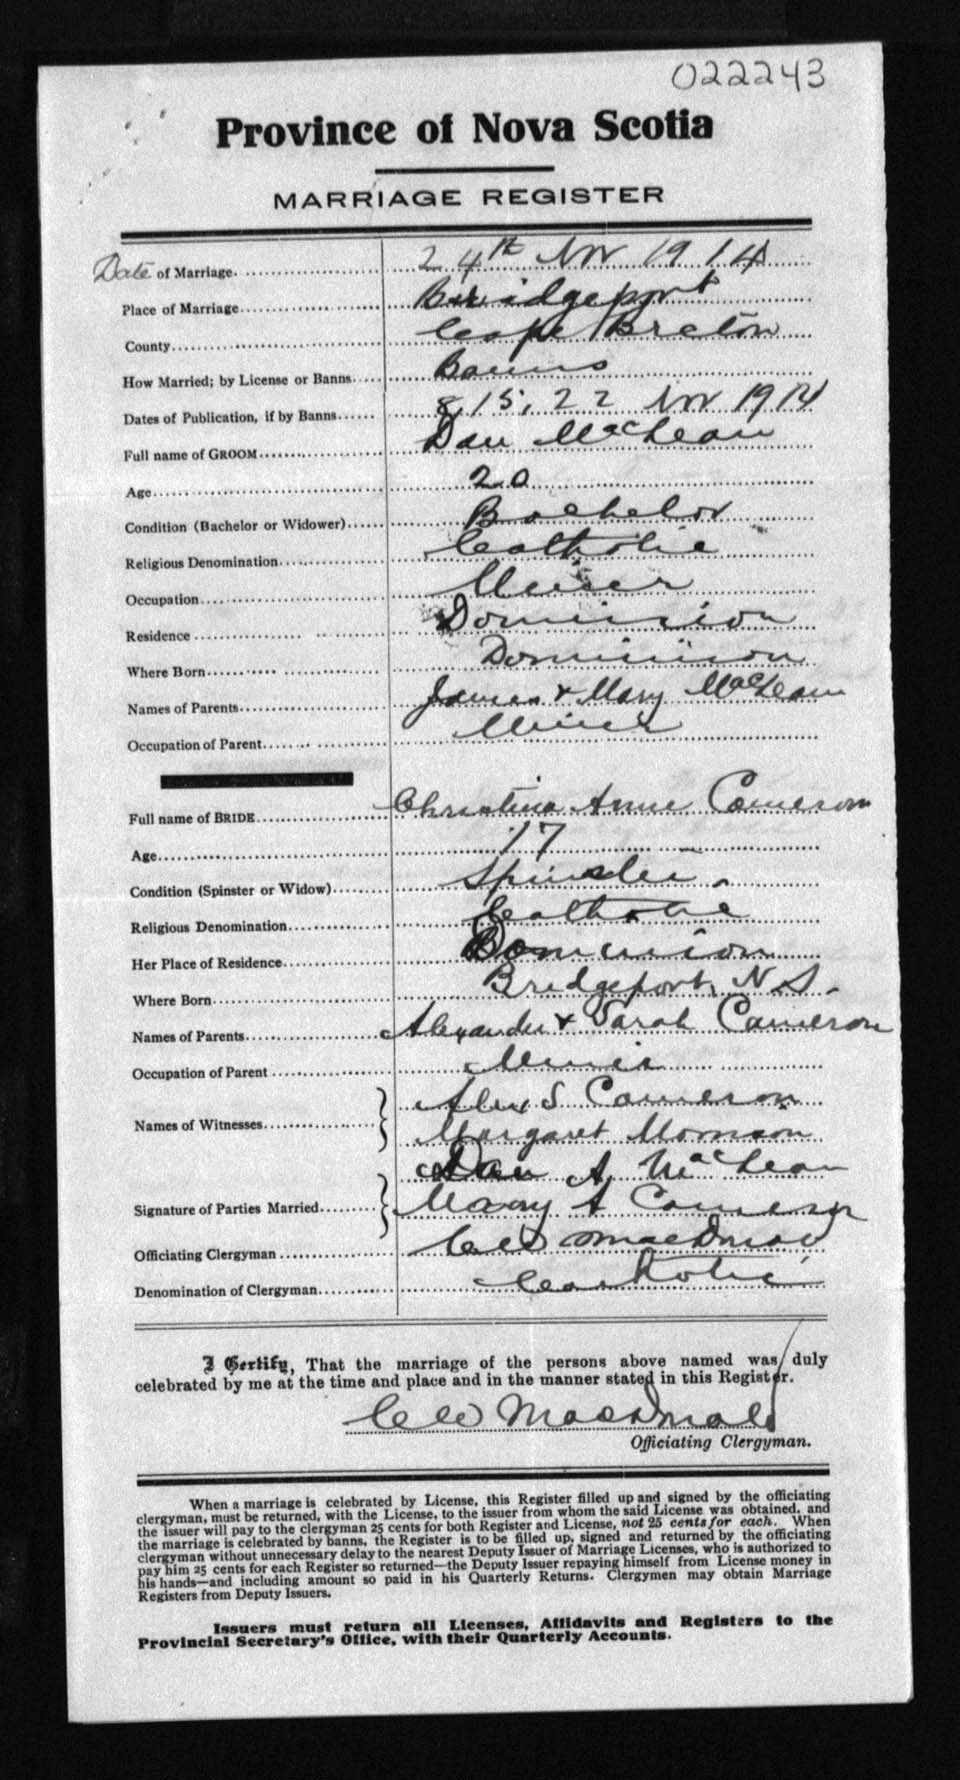 022243
Province of Nova Scotia
MARRIAGE REGISTER
Date of Marriage. 24th Nov 1914
Place of Marriage Bridgeport
County Cape Breton
How Married; by License or Banns Banns
Dates of Publication, if by Banns 8, 15, 22 Nov 1914
Full name of GROOM Dan MacLean
Age 20
Condition (Bachelor or Widower) Bachelor
Religious Denomination Catholic
Occupation Miner
Residence Dominion
Where Born Dominion
Names of Parents James & Mary MacLean
Occupation of Parent Miner
Full name of BRIDE Christina Anne Cameron
Age 17
Condition (Spinster or Widow) Spinster
Religious Denomination Catholic
Her Place of Residence Dominion
Where Born Bridgeport, N S.
Names of Parents Alexander & Sarah Cameron
Occupation of Parent Miner
Names of Witnesses Alex S Cameron
Margaret Morrison
Signature of Parties Married Dan A. McLean
Mary A Cameron
Officiating Clergyman MacDonald
Denomination of Clergyman Catholic
I Certify, That the marriage of the persons above named was duly
celebrated by me at the time and place and in the manner stated in this Register.
MacDonald
Officiating Clergyman.
When a marriage is celebrated by License, this Register filled up and signed by the officiating
clergyman, must be returned, with the License, to the issuer from whom the said License was obtained, and
the issuer will pay to the clergyman 25 cents for both Register and License, not 25 cents for each. When
the marriage is celebrated by banns, the Register is to be filled up, signed and returned by the officiating
clergyman without unnecessary delay to the nearest Deputy Issuer of Marriage Licenses, who is authorized to
pay him 25 cents for each Register so returned—the Deputy Issuer repaying himself from License money in
his hands—and including amount so paid in his Quarterly Returns. Clergymen may obtain Marriage
Registers from Deputy Issuers.
Issuers must return all Licenses, Affidavits and Registers to the
Provincial Secretary's Office, with their Quarterly Accounts.